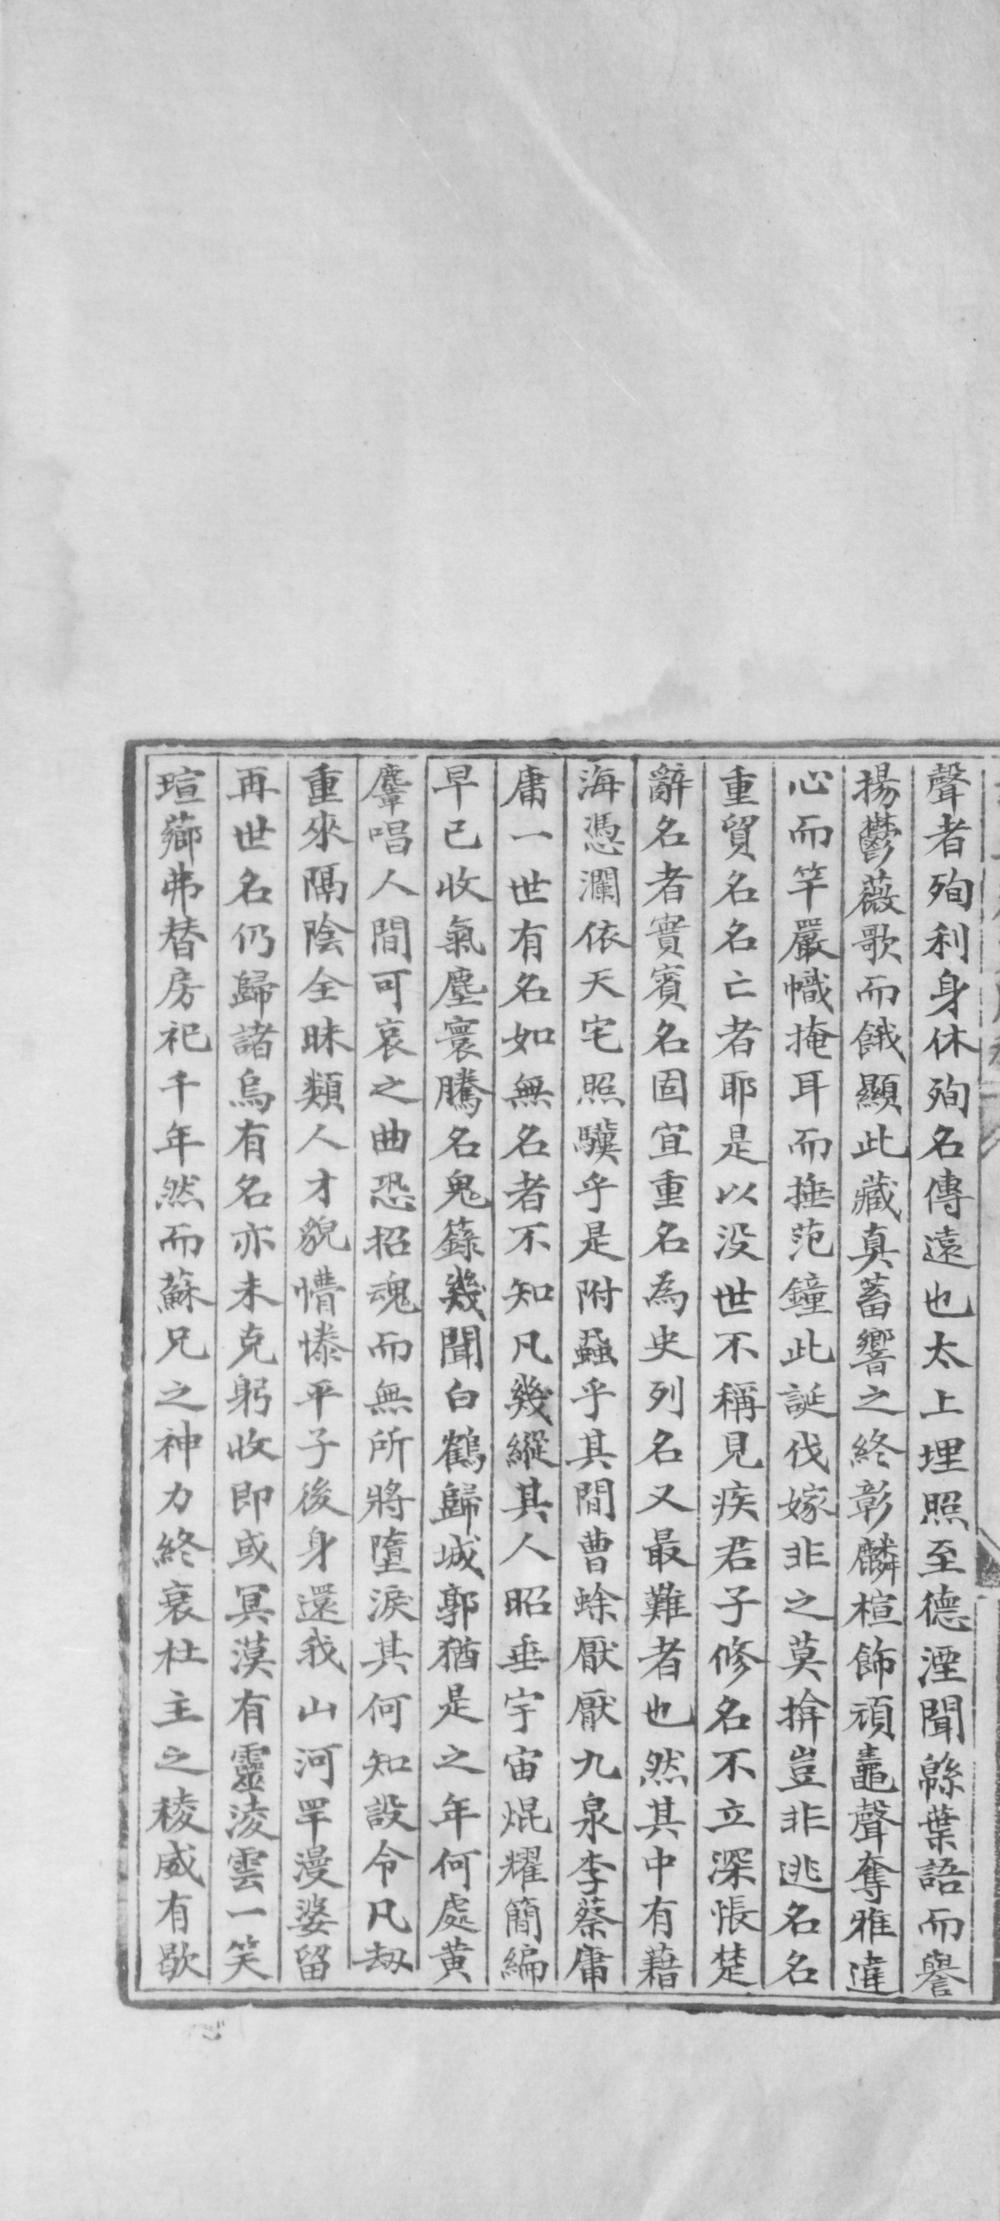 聲者殉利身休殉名傳遠也太上埋照至德湮聞緜葉語而譽
揚鬱薇歌而餓顯此藏真蓄響之終彰麟楦飾頑鼃聲奪雅違
心而竿嚴幟掩耳而捶范鐘此誕伐嫁非之莫揜豈非逃名名
重貿名名亡者耶是以没世不稱見疾君子修名不立深悵楚
辭名者實賓名固宜重名為史列名又最難者也然其中有藉
海憑瀾依天宅照驥乎是附蝨乎其間曹蜍厭厭九泉李蔡庸
庸一世有名如無名者不知凡幾縱其人昭垂宇宙焜耀簡編
早已收氣塵寰騰名鬼籙幾聞白鶴歸城郭猶是之年何處黄
麞唱人間可哀之曲恐招魂而無所將墮淚其何知設令凡劫
重來隔陰全昧類人才貌懵慀平子後身還我山河罕漫婆留
再世名仍歸諸烏有名亦未克躬收即或冥漠有靈淩雲一笑
瑄薌弗替房祀千年然而蘇兄之神力終衰杜主之稜威有歇